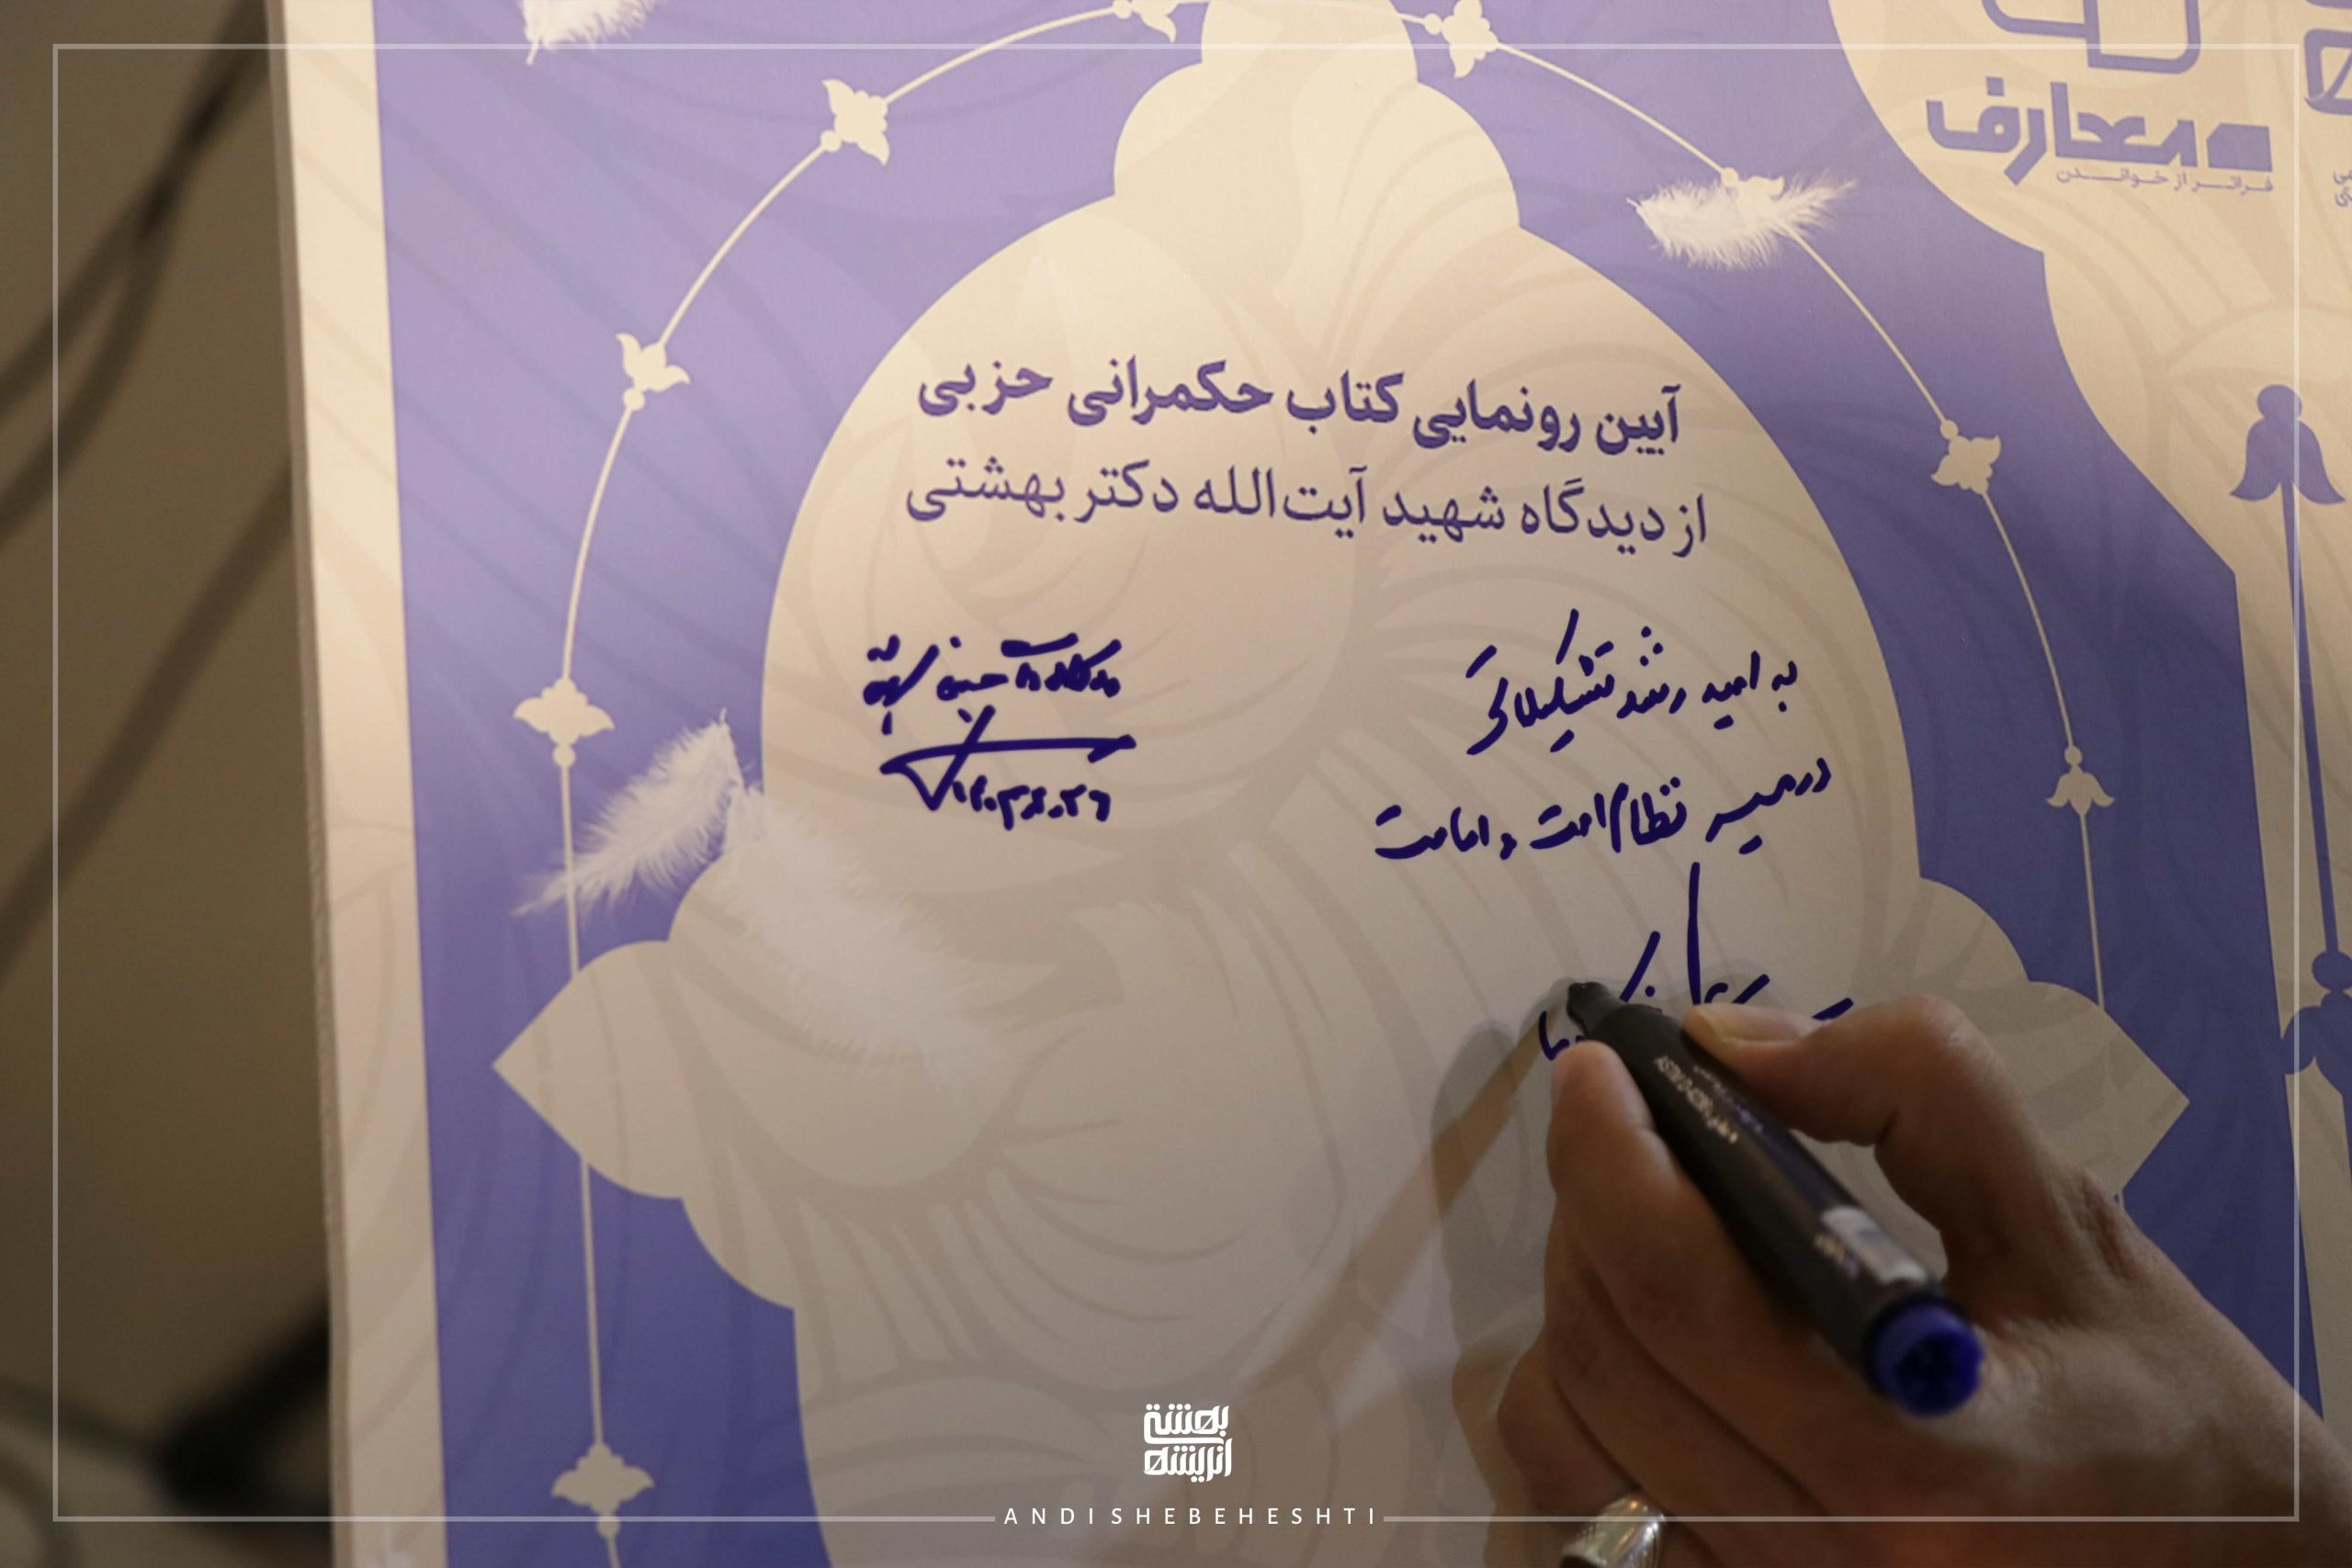 معارف
فراتر از خواندن
آیین رونمایی کتاب حکمرانی حزبی
از دیدگاه شهید آیت‌الله دکتر بهشتی
به امید رشد تشکیلاتی
در مسیر نظام امت و امامت
بهشتی
اندیشه
ANDISHEBEHESHTI